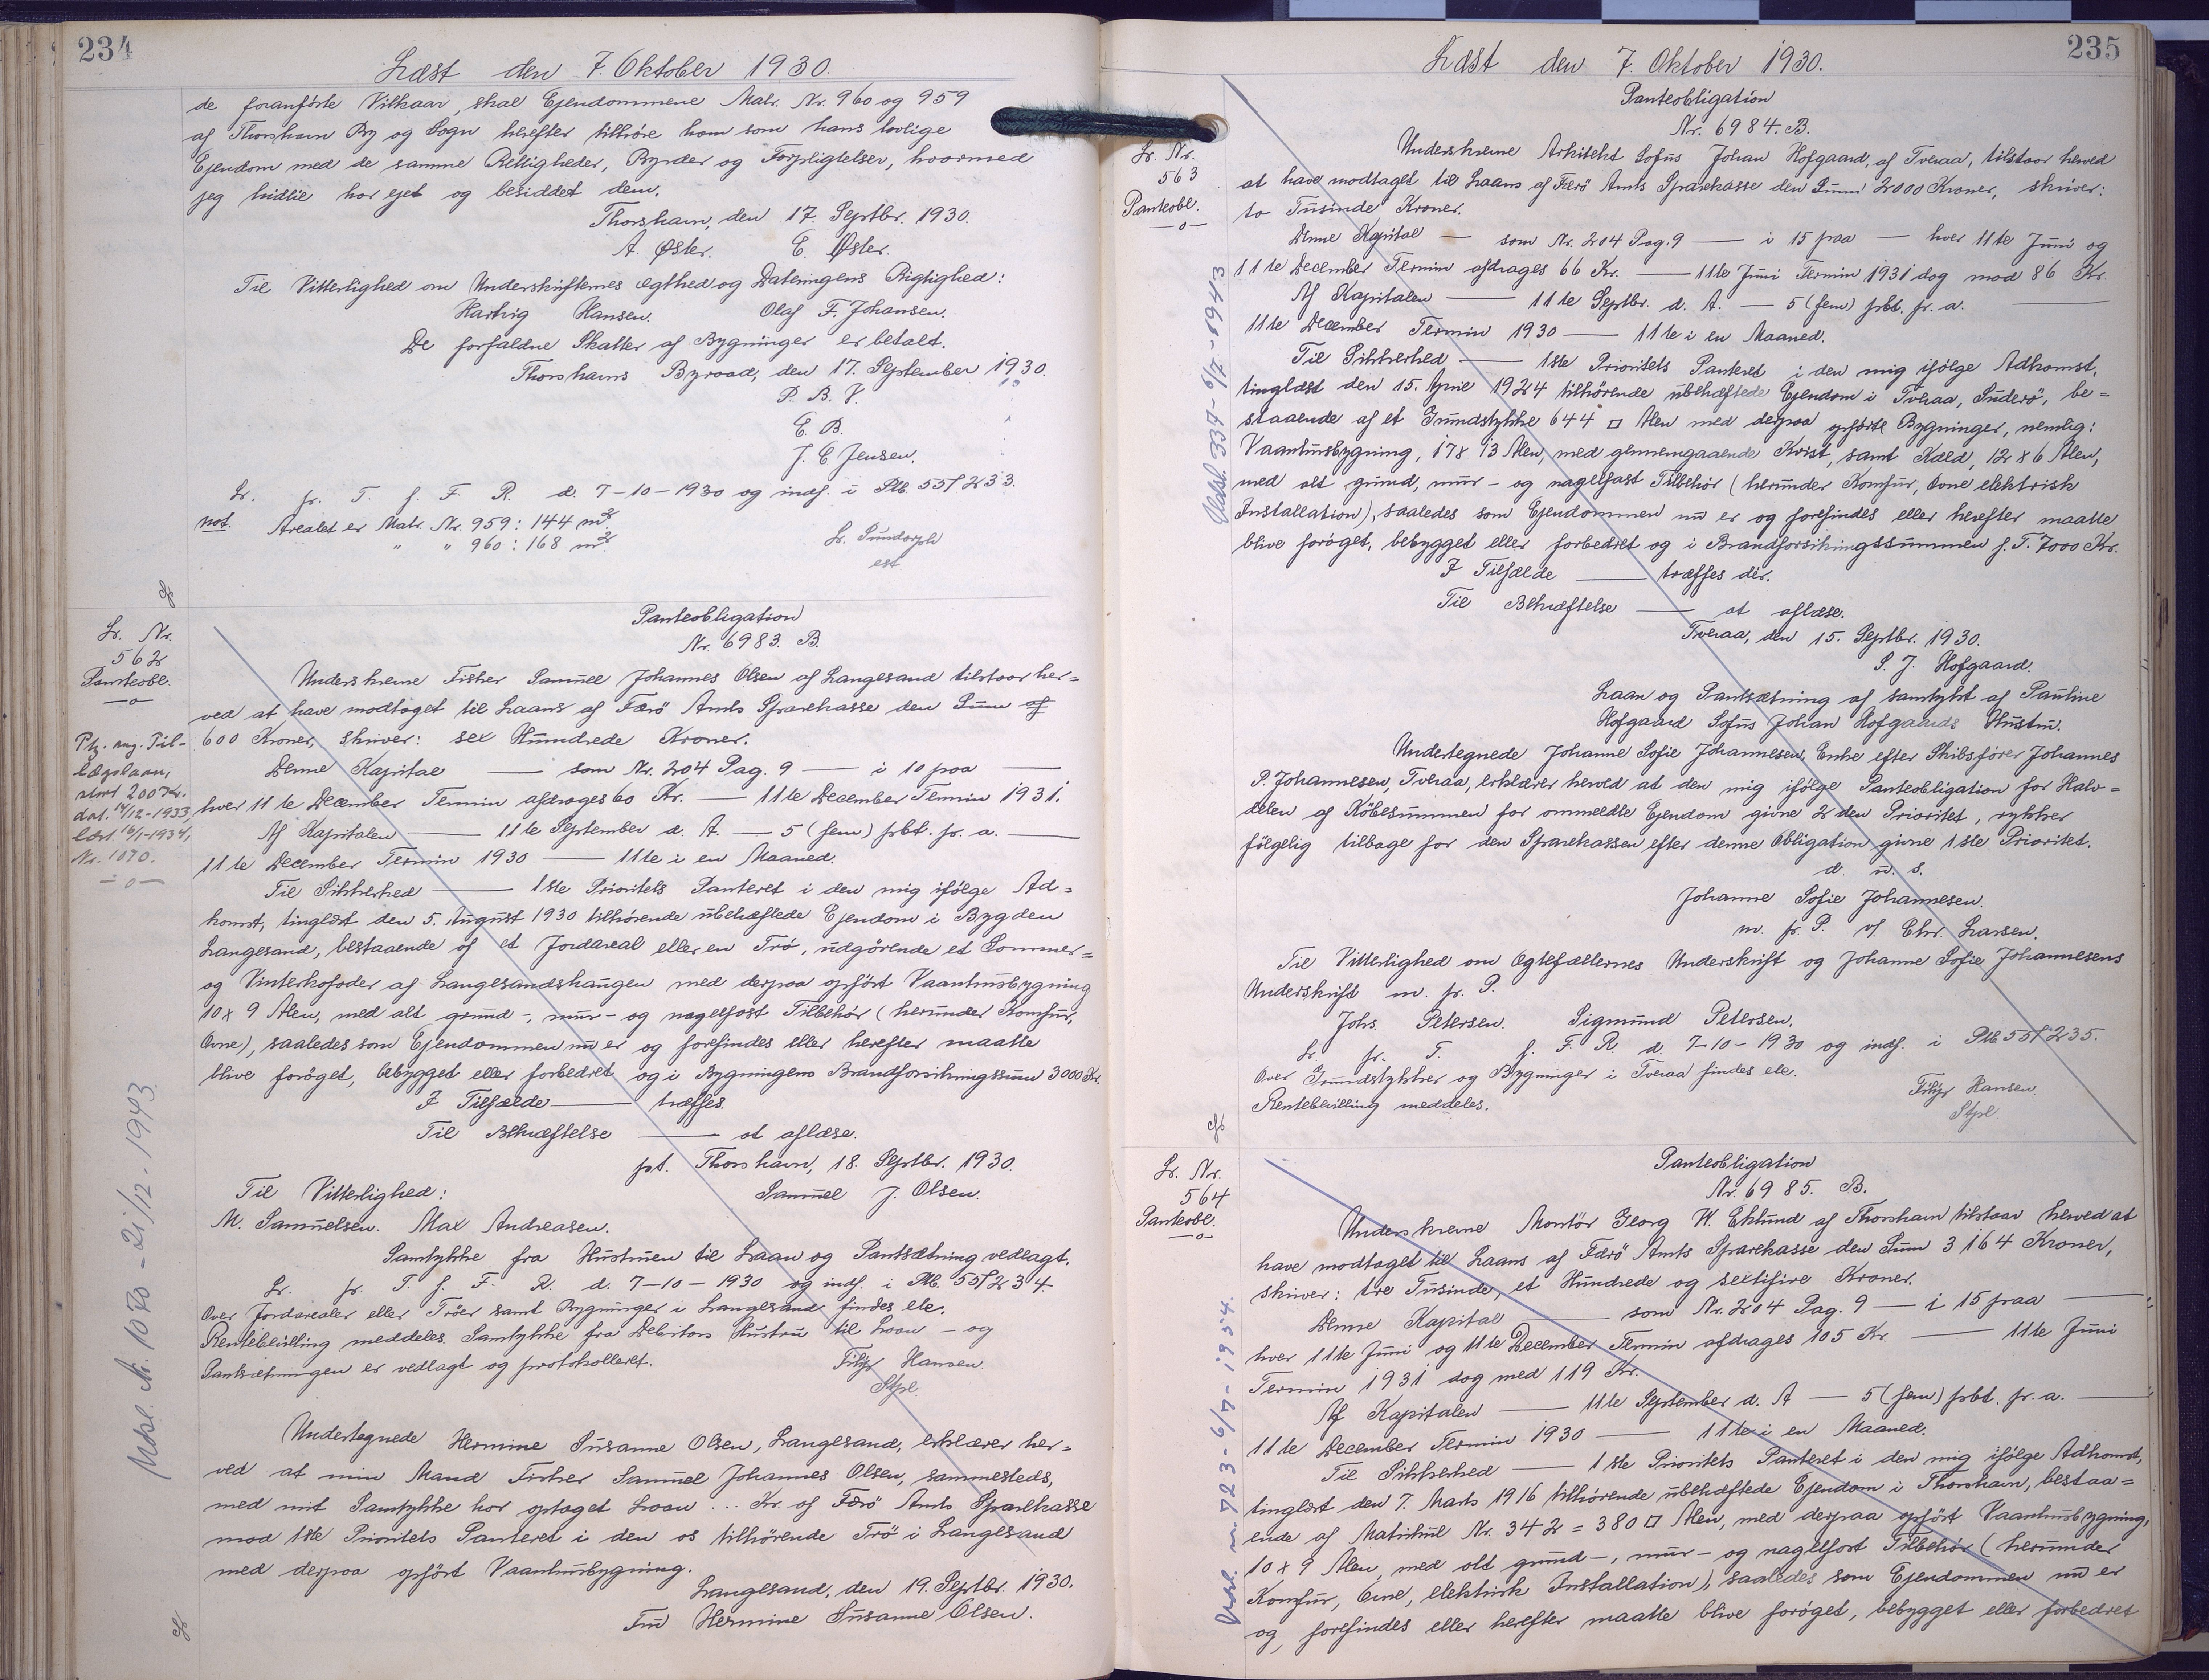 234
Læst den 7. Oktober 1930.
de foranførte Vilkaar, skal Ejendommene Matr. Nr. 960 og 959
af Thorshavn By og Sogn herefter tilhøre ham som hans lovlige
Ejendom med de samme Rettigheder, Byrder og Forpligtelser, hvormed
jeg hidtil har ejet og besiddet dem.
Thorshavn, den 17. Septbr. 1930.
A. Øster. E. Øster.
Til Vitterlighed om Underskrifternes Ægthed og Dateringens Rigtighed:
Hartvig Hansen. Olaf F. Johansen.
De forfaldne Skatter af Bygninger er betalt.
Thorshavns Byraad, den 17. September 1930.
P. B. V.
E. B.
J. C. Jensen.
Lr. fr. T. f. F. R. d. 7-10-1930 og indf. i Ptb. 55f 233.
not. Arealet er Matr. Nr. 959: 144 m²
" " 960: 168 m²
Fr. Pundorph
est
Lr. Nr.
562
Panteobl.
—o—
Panteobligation
Nr. 6983. B.
Underskrevne Fisker Samuel Johannes Olsen af Langesand tilstaar her=
ved at have modtaget til Laans af Færø Amts Sparekasse den Sum af
600 Kroner, skriver: sex Hundrede Kroner.
Denne Kapital —— som Nr. 204 Pag. 9 —— i 10 paa ——
hver 11te December Termin afdrages 60 Kr. —— 11te December Termin 1931.
Af Kapitalen —— 11te September d. A. —— 5 (fem) pCt. pr. a. ——
11te December Termin 1930 —— 11te i en Maaned.
Til Sikkerhed —— 1ste Prioritets Panteret i den mig ifølge Ad=
komst, tinglæst den 5. August 1930 tilhørende ubehæftede Ejendom i Bygden
Langesand, bestaaende af et Jordareal eller en Trø, udgørende et Sommer=
og Vinterkofoder af Langesandshaugen med derpaa opført Vaanhusbygning
10 x 9 Alen, med alt grund-, mur- og nagelfast Tilbehør (herunder Komfur,
Ovne), saaledes som Ejendommen nu er og forefindes eller herefter maatte
blive forøget, bebygget eller forbedret og i Bygningens Brandforsikringssum 3000 Kr.
I Tilfælde —— træffes.
Til Bekræftelse —— at aflæse.
pt. Thorshavn, 18. Septbr. 1930.
Til Vitterlighed: Samuel J. Olsen.
M. Samuelsen. Max Andreasen.
Samtykke fra Hustruen til Laan og Pantsætning vedlagt.
Lr. fr. T. f. F. R. d. 7-10-1930 og indf. i Ptb. 55f 234.
Over Jordarealer eller Trøer samt Bygninger i Langesand findes ele.
Rentebevilling meddeles. Samtykke fra Debitors Hustru til Laan- og
Pantsætningen er vedlagt og protokolleret.
Filip Hansen
Stpl.
Undertegnede Hermine Susanne Olsen, Langesand, erklærer her=
ved at min Mand Fisker Samuel Johannes Olsen, sammesteds,
med mit Samtykke har optaget Laan ... Kr. af Færø Amts Sparekasse
mod 1ste Prioritets Panteret i den os tilhørende Trø i Langesand
med derpaa opført Vaanhusbygning.
Langesand, den 19. Septbr. 1930.
Fru Hermine Susanne Olsen.
Ptg. ang. Til-
lægslaan,
stort 200 Kr.
dat. 14/12-1933,
læst 16/1-1934,
Nr. 1070.
—o—
Udsl. Nr. 1080 - 21/12-1943
235
Læst den 7. Oktober 1930.
Lr. Nr.
563
Panteobl.
—o—
Panteobligation
Nr. 6984. B.
Underskrevne Arkitekt Sofus Johan Hofgaard, af Tveraa, tilstaar herved
at have modtaget til Laans af Færø Amts Sparekasse den Sum 2000 Kroner, skriver:
to Tusinde Kroner.
Denne Kapital —— som Nr. 204 Pag. 9 —— i 15 paa —— hver 11te Juni og
11te December Termin afdrages 66 Kr. —— 11te Juni Termin 1931 dog mod 86 Kr.
Af Kapitalen —— 11te Septbr. d. A. —— 5 (fem) pCt. pr. a. ——
11te December Termin 1930 —— 11te i en Maaned.
Til Sikkerhed —— 1ste Prioritets Panteret i den mig ifølge Adkomst,
tinglæst den 15. April 1924 tilhørende ubehæftede Ejendom i Tveraa, Suderø, be=
staaende af et Grundstykke 644 □ Alen med derpaa opførte Bygninger, nemlig:
Vaanhusbygning, 17 x 13 Alen, med gennemgaaende Kvist, samt Kæld, 12 x 6 Alen,
med alt grund, mur- og nagelfast Tilbehør (herunder Komfur, Ovne elektrisk
Installation), saaledes som Ejendommen nu er og forefindes eller herefter maatte
blive forøget, bebygget eller forbedret og i Brandforsikringssummen f. T. 7000 Kr.
I Tilfælde —— træffes dér.
Til Bekræftelse —— at aflæse.
Tveraa, den 15. Septbr. 1930.
S. J. Hofgaard.
Laan og Pantsætning af samtykt af Pauline
Hofgaard Sofus Johan Hofgaards Hustru.
Undertegnede Johanne Sofie Johannesen, Enke efter Skibsfører Johannes
P. Johannesen, Tveraa, erklærer herved at den mig ifølge Panteobligation for Halv=
delen af Købesummen for ommeldte Ejendom givne 2den Prioritet, rykker
følgelig tilbage for den Sparekassen efter denne Obligation givne 1ste Prioritet.
d. u. s.
Johanne Sofie Johannesen.
m. f. P. v/ Chr. Larsen.
Til Vitterlighed om Ægtefællernes Underskrift og Johanne Sofie Johannesens
Underskrift m. f. P.
Johs. Petersen. Sigmund Petersen.
Lr. fr. T. f. F. R. d. 7-10-1930 og indf. i Ptb 55f 235.
Over Grundstykker og Bygninger i Tveraa findes ele.
Rentebevilling meddeles.
Filip Hansen
Stpl.
Udsl. 337-6/7-1943
Lr. Nr.
564
Panteobl.
—o—
Panteobligation
Nr. 6985. B.
Underskrevne Montør Georg W. Eklund af Thorshavn tilstaar herved at
have modtaget til Laans af Færø Amts Sparekasse den Sum 3164 Kroner,
skriver: tre Tusinde, et Hundrede og sextifire Kroner.
Denne Kapital —— som Nr. 204 Pag. 9 —— i 15 paa ——
hver 11te Juni og 11te December Termin afdrages 105 Kr. —— 11te Juni
Termin 1931 dog med 119 Kr.
Af Kapitalen —— 11te September d. A —— 5 (fem) pCt. pr. a. ——
11te December Termin 1930 —— 11te i en Maaned.
Til Sikkerhed —— 1ste Prioritets Panteret i den mig ifølge Adkomst,
tinglæst den 7. Marts 1916 tilhørende ubehæftede Ejendom i Thorshavn, bestaa=
ende af Matrikul Nr. 342 = 380 □ Alen, med derpaa opført Vaanhusbygning,
10 x 9 Alen, med alt grund-, mur- og nagelfast Tilbehør (herunder
Komfur, Ovne, elektrisk Installation), saaledes som Ejendommen nu er
og, forefindes eller herefter maatte blive forøget, bebygget eller forbedret
Udsl. nr. 723-6/7-1954.